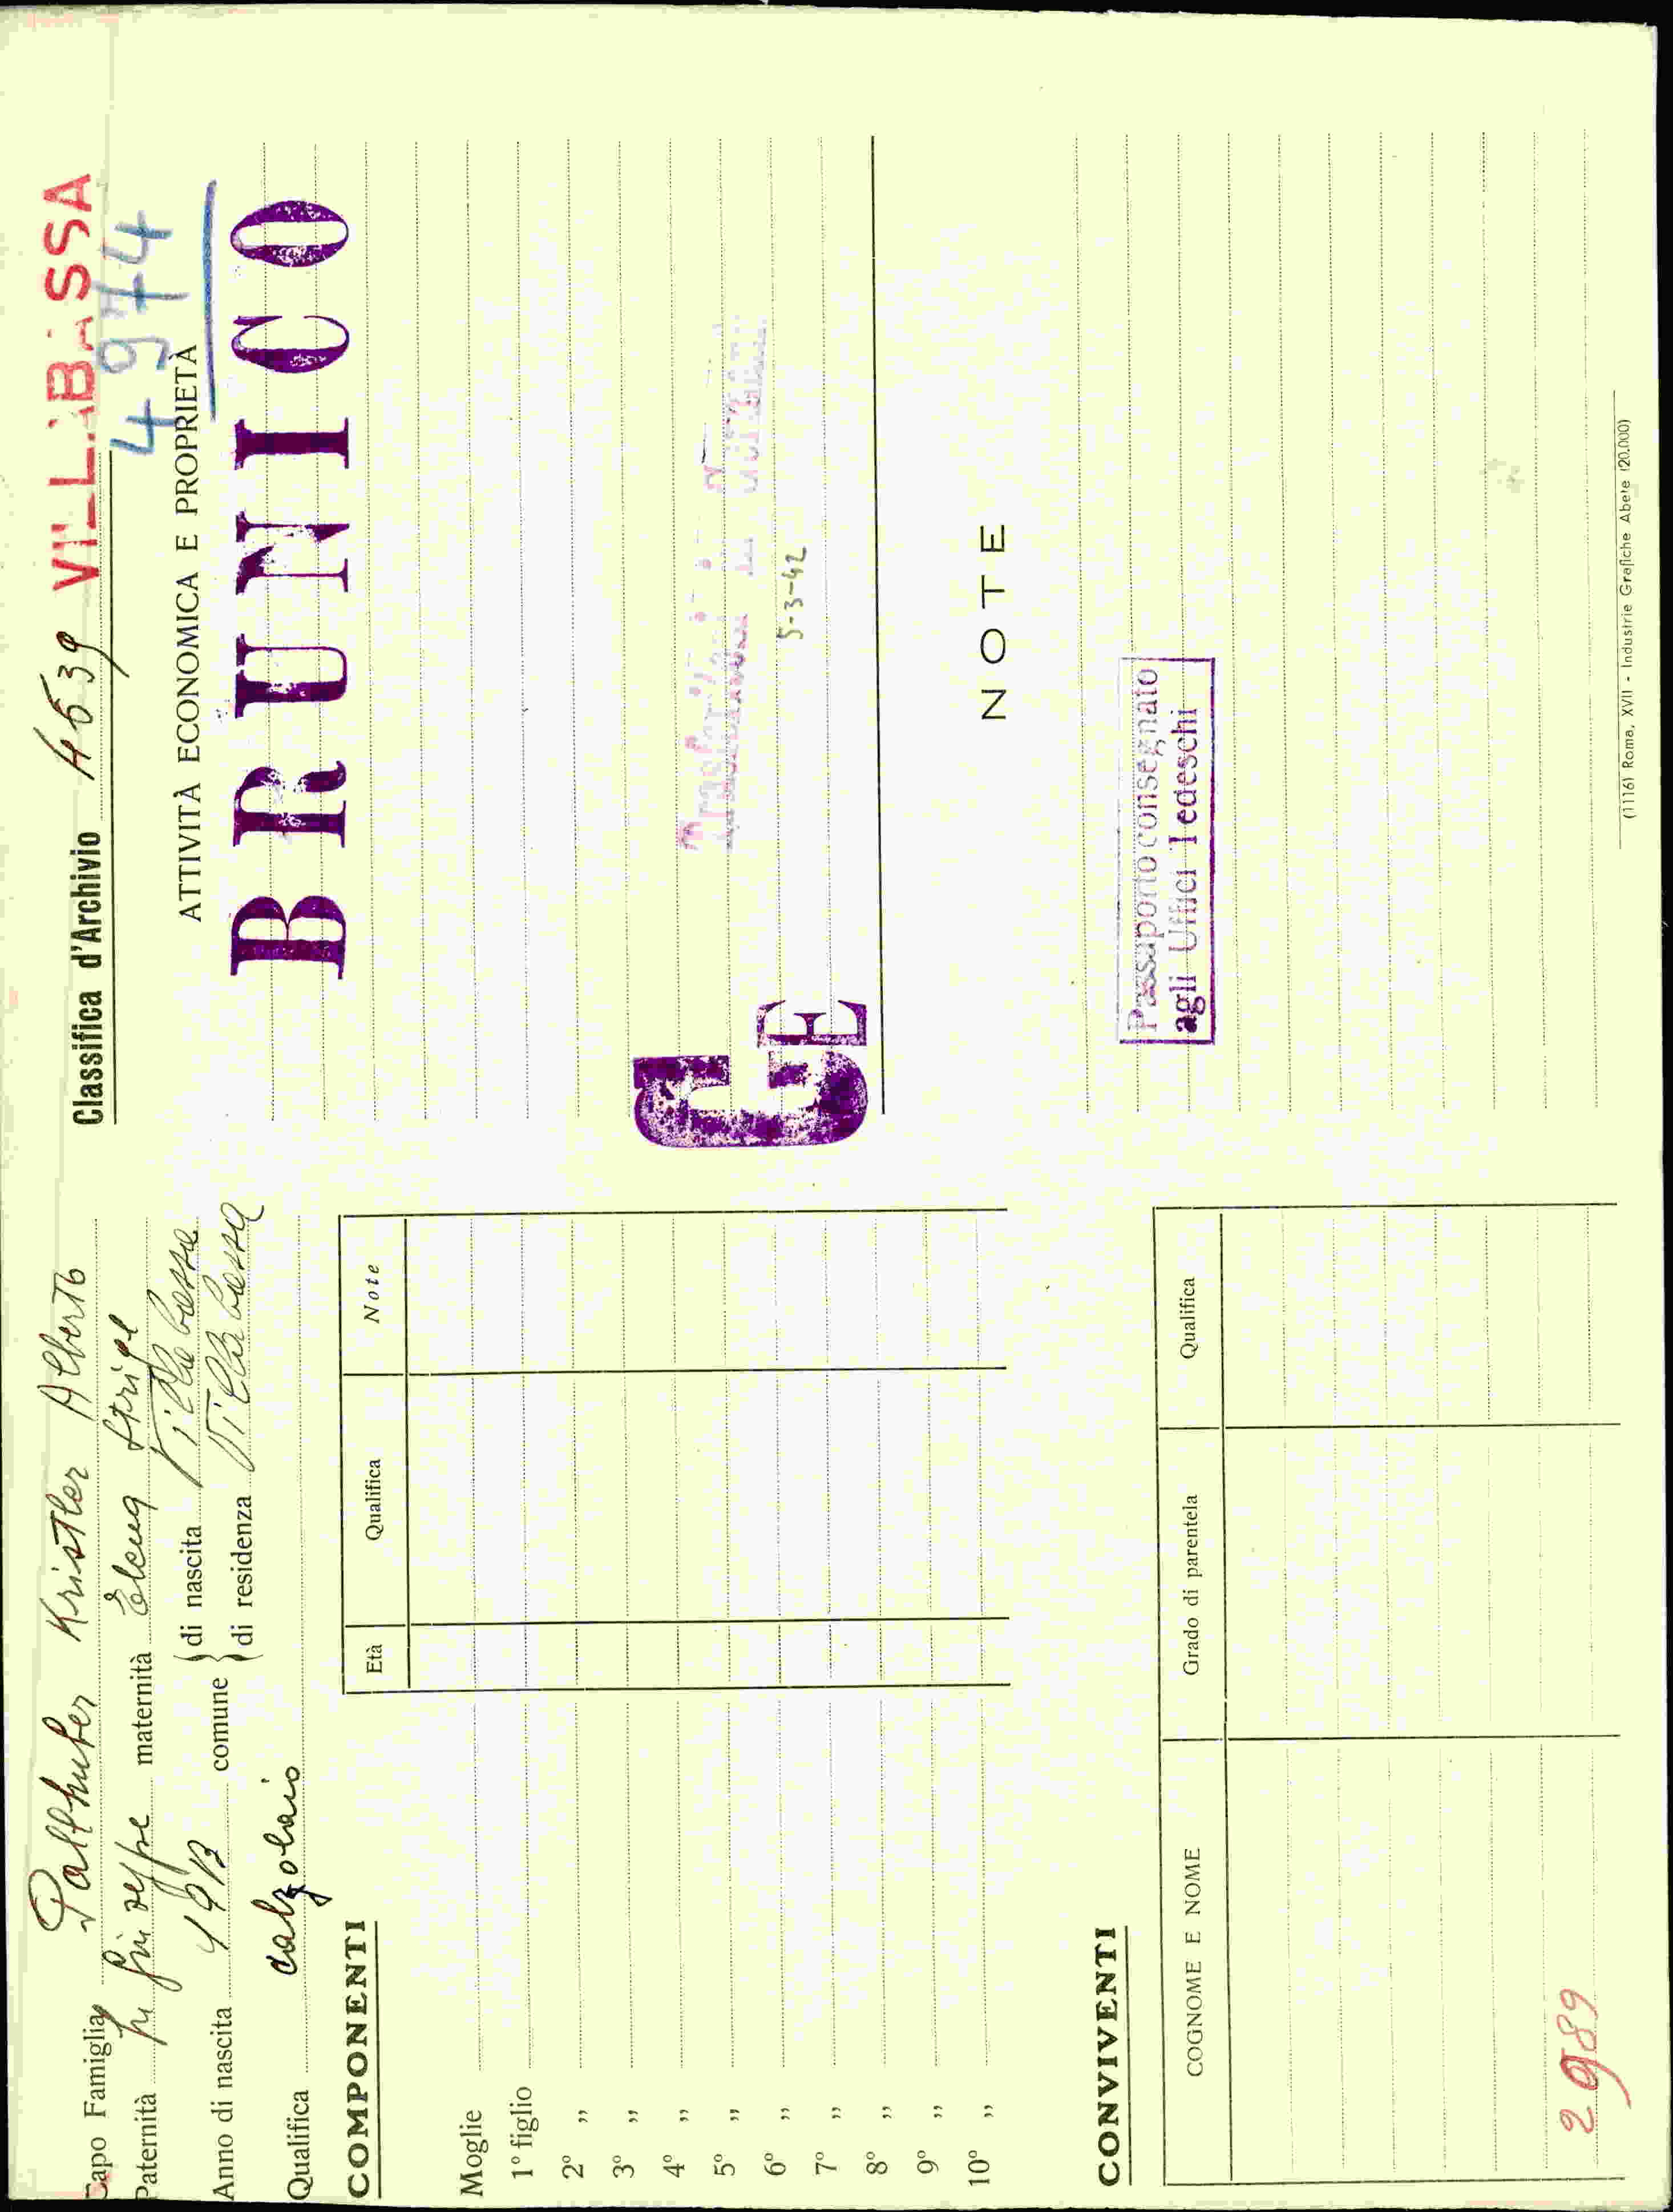 Capo Famiglia Palthuber Kristler Alberto
Paternità fu Giuseppe maternità Elena
Anno di nascita 1913 comune di nascita Villabassa
di residenza Villabassa
Qualifica calzolaio
COMPONENTI
Età Qualifica Note
Moglie
1º figlio
2º ,,
3º ,,
4º ,,
5º ,,
6º ,,
7º ,,
8º ,,
9º ,,
10º ,,
CONVIVENTI
COGNOME E NOME Grado di parentela Qualifica
2989
Classifica d'Archivio 4539 VILLABASSA
4974
ATTIVITÀ ECONOMICA E PROPRIETÀ
BRUNICO
Trasferito
5-3-42
GE
NOTE
Passaporto consegnato
agli Uffici Tedeschi
(1116) Roma, XVII - Industrie Grafiche Abete (20.000)